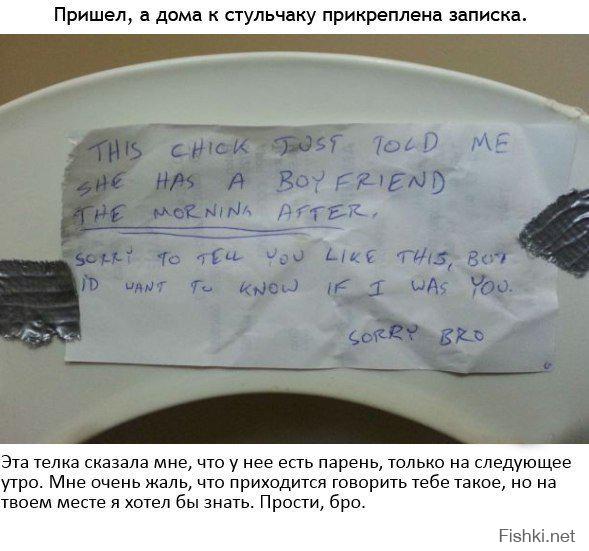 Пришел, а дома к стульчаку прикреплена записка.
THIS CHICK JUST TOLD ME
SHE HAS A BOYFRIEND
THE MORNING AFTER.
SORRY TO TELL YOU LIKE THIS, BUT
I'D WANT TO KNOW IF I WAS YOU.
SORRY BRO
Эта телка сказала мне, что у нее есть парень, только на следующее
утро. Мне очень жаль, что приходится говорить тебе такое, но на
твоем месте я хотел бы знать. Прости, бро.
Fishki.net